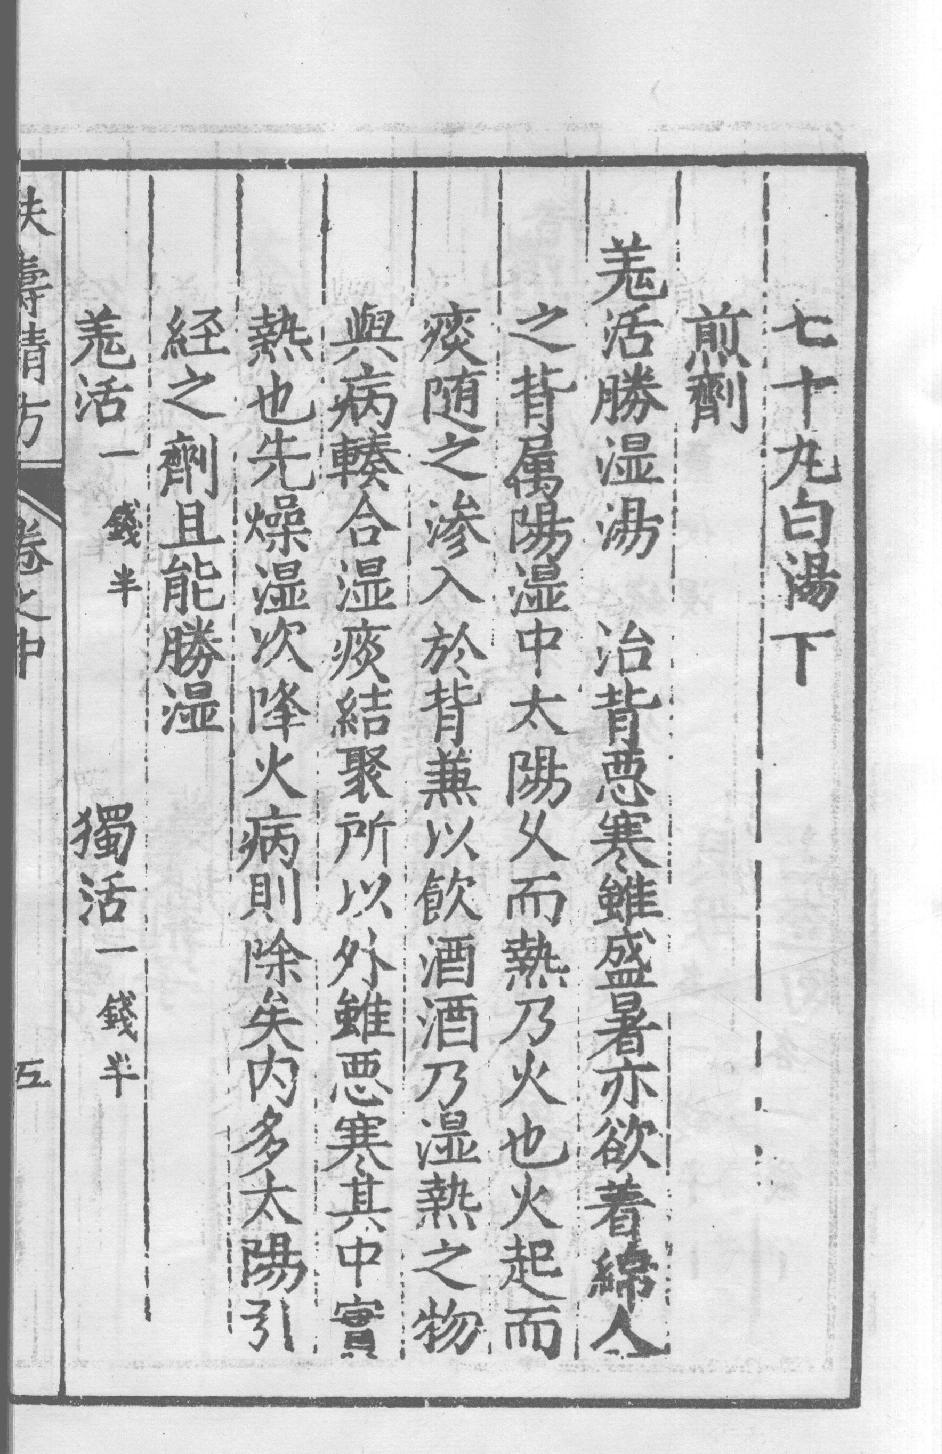 七十丸白湯下
煎劑
羗活勝湿湯　治背惡寒雖盛暑亦欲着綿人
之背属陽湿中太陽乆而熱乃火也火起而
痰随之渗入於背兼以飲酒酒乃湿熱之物
與病輳合湿痰結聚所以外雖惡寒其中實
熱也先燥湿次降火病則除矣内多太陽引
経之劑且能勝湿
羗活一錢半　獨活一錢半
扶壽精方　卷之中　五